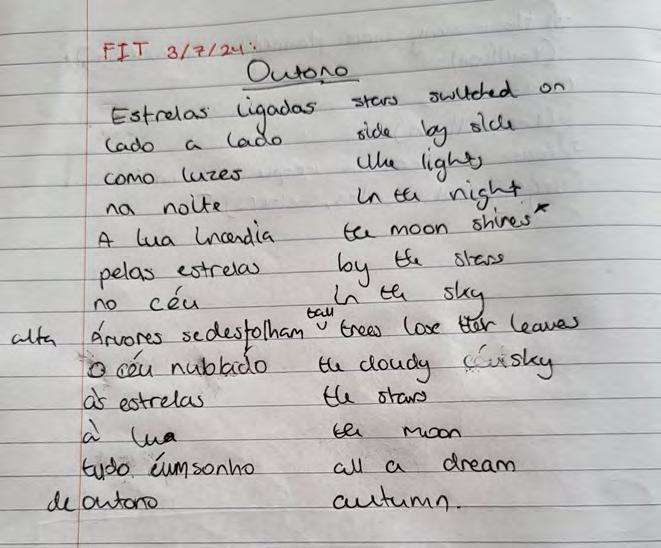 FIT 3/7/24:
Outono
Estrelas ligadas stars switched on
lado a lado side by side
como luzes like lights
na noite in the night
A lua incendia the moon shines*
pelas estrelas by the stars
no céu in the sky
alta Árvores sedesfolham tall trees lose their leaves
o céu nubbado the cloudy sky
às estrelas the stars
à lua the moon
tudo éumsonho all a dream
de outono autumn.